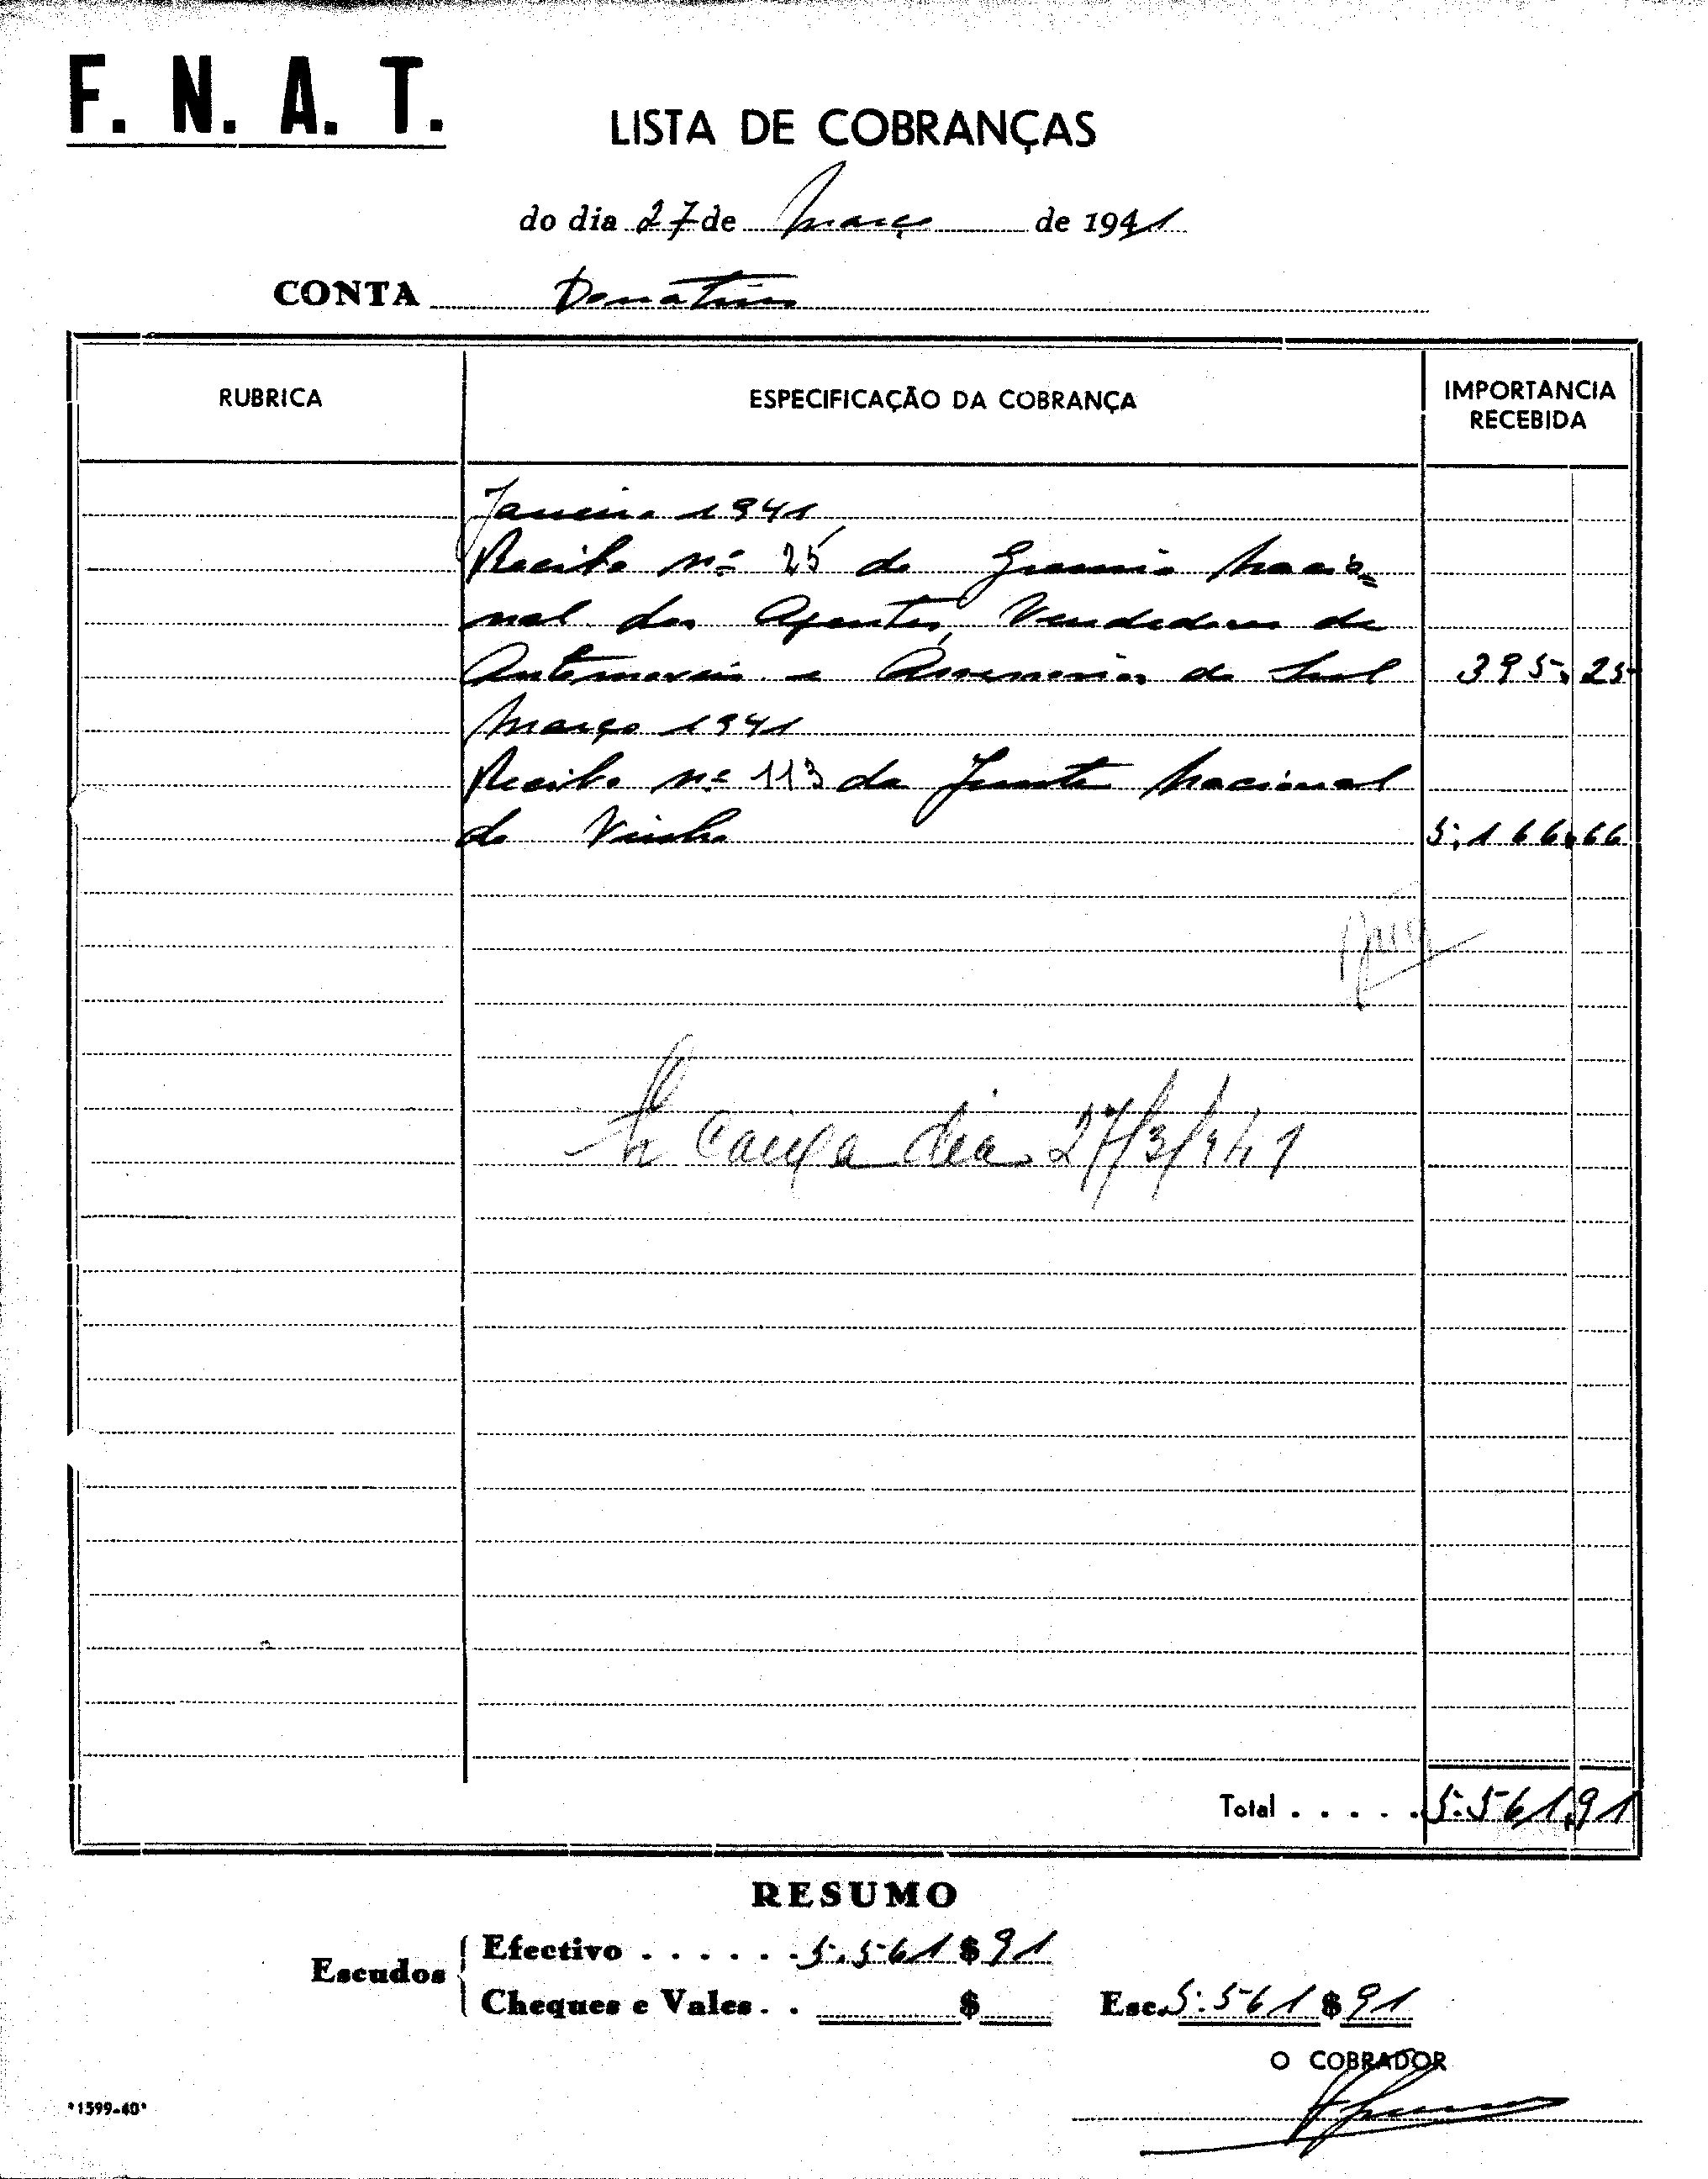 F. N. A. T.
LISTA DE COBRANÇAS
do dia 27 de Março de 1941
CONTA Donativos
RUBRICA
ESPECIFICAÇÃO DA COBRANÇA
IMPORTANCIA
RECEBIDA
Janeiro 1941
Recibo nº 25 do Gremio Nacio=
nal dos Agentes Vendedores de
Automoveis e Acessorios do Sul 395, 25
Março 1941
Recibo nº 113 da Junta Nacional
do Vinho 5:166,66
Caixa dia 27/3/941
Total . . . . . 5:561,91
RESUMO
Escudos
Efectivo . . . . . . 5.561$91
Cheques e Vales. . $
Esc. 5:561$91
O COBRADOR
*1599-40*